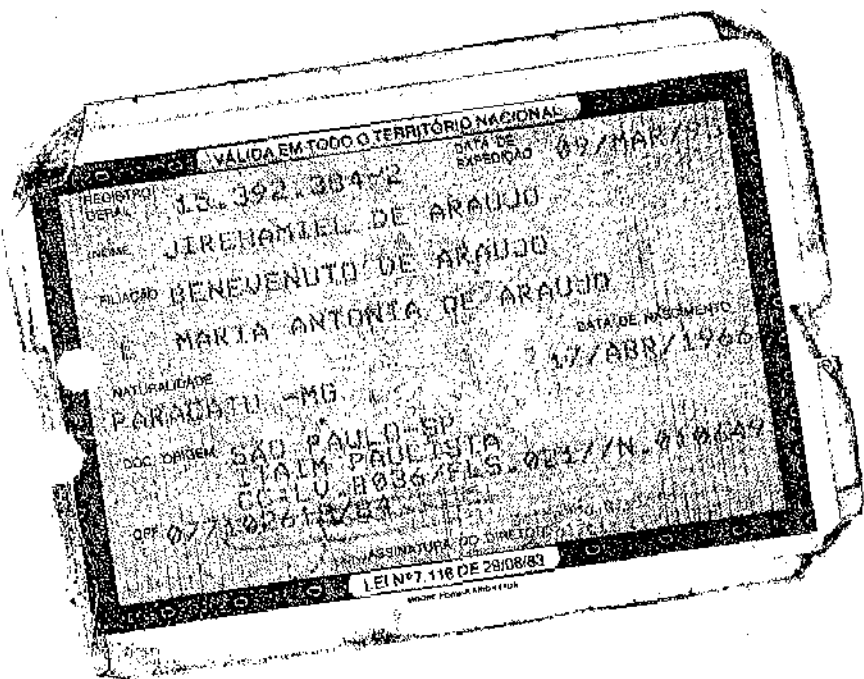 VÁLIDA EM TODO O TERRITÓRIO NACIONAL
REGISTRO GERAL 18.392.384-2 DATA DE EXPEDIÇÃO 09/MAR/
NOME JIREHAMIEL DE ARAUJO
FILIAÇÃO BENEVENUTO DE ARAUJO
MARIA ANTONIA DE ARAUJO
NATURALIDADE DATA DE NASCIMENTO
PARACATU -MG 17/ABR/1966
DOC. ORIGEM SÃO PAULO-SP
ITAIM PAULISTA
CC:LV.B036/FLS.021//N.010649
CPF
ASSINATURA DO DIRETOR
LEI Nº 7.116 DE 29/08/83